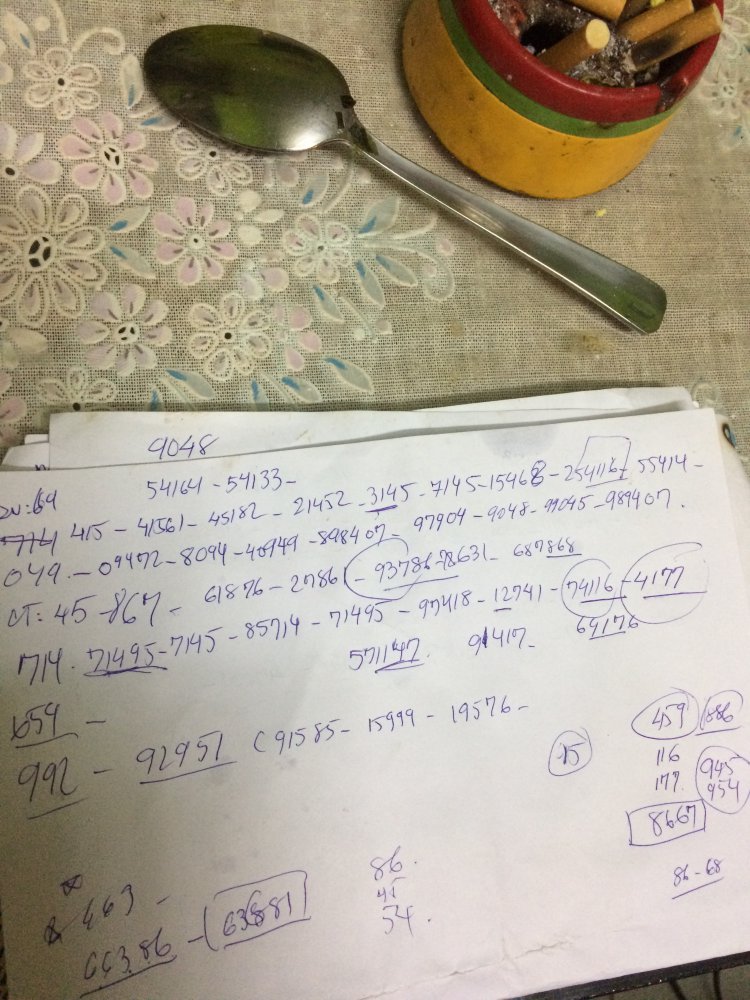 9048
54164 - 54133 -
415 - 41561 - 45182 - 21452 - 3145 - 7145 - 15468 - 254116 - 55414 -
049 - 09472 - 8094 - 40949 - 898407 - 97904 - 9048 - 99045 - 989407.
CT: 45 - 867 - 61876 - 27861 - 93786 - 78631 - 687868
714. 71495 - 7145 - 85714 - 71495 - 97418 - 12741 - 74116 - 4177
571147. 91417. 64176
659 -
992 - 92951 ( 91585 - 15999 - 19576 -
15
459 886
116
177. 945
954
8667
86 - 68
463 -
66386 - ( 63881
86.
45
54.